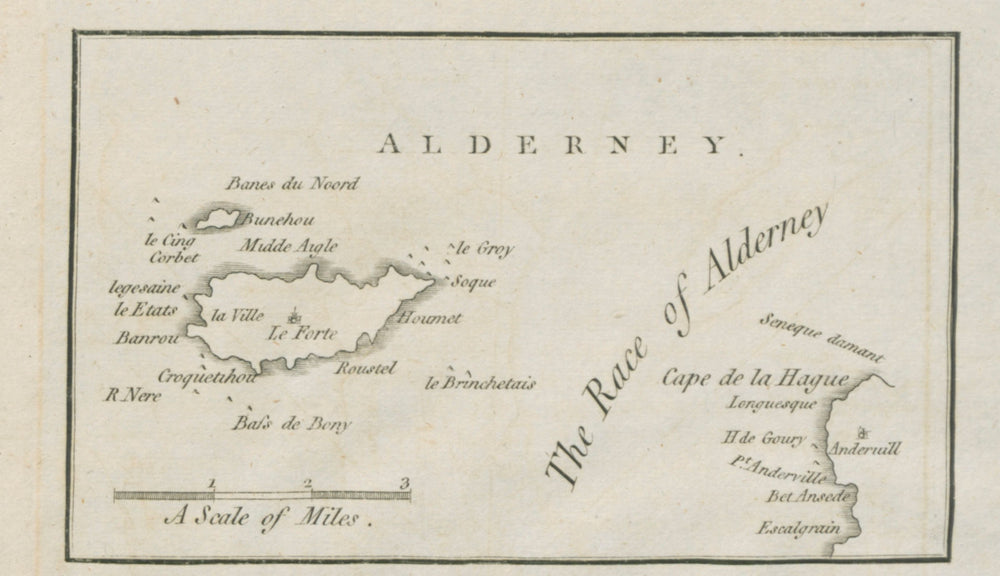 ALDERNEY.
Banes du Noord
Bunehou
le Cinq
Corbet
Midde Aigle
le Groy
Soque
legesaine
le Etats
la Ville
Le Forte
Houmet
Banrou
Croquetihou
Roustel
R Nere
le Brinchetais
Bass de Bony
1 2 3
A Scale of Miles.
The Race of Alderney
Seneque damant
Cape de la Hague
Longuesque
H de Goury
Anderuill
Pt. Anderville
Bet Ansede
Escalgrain